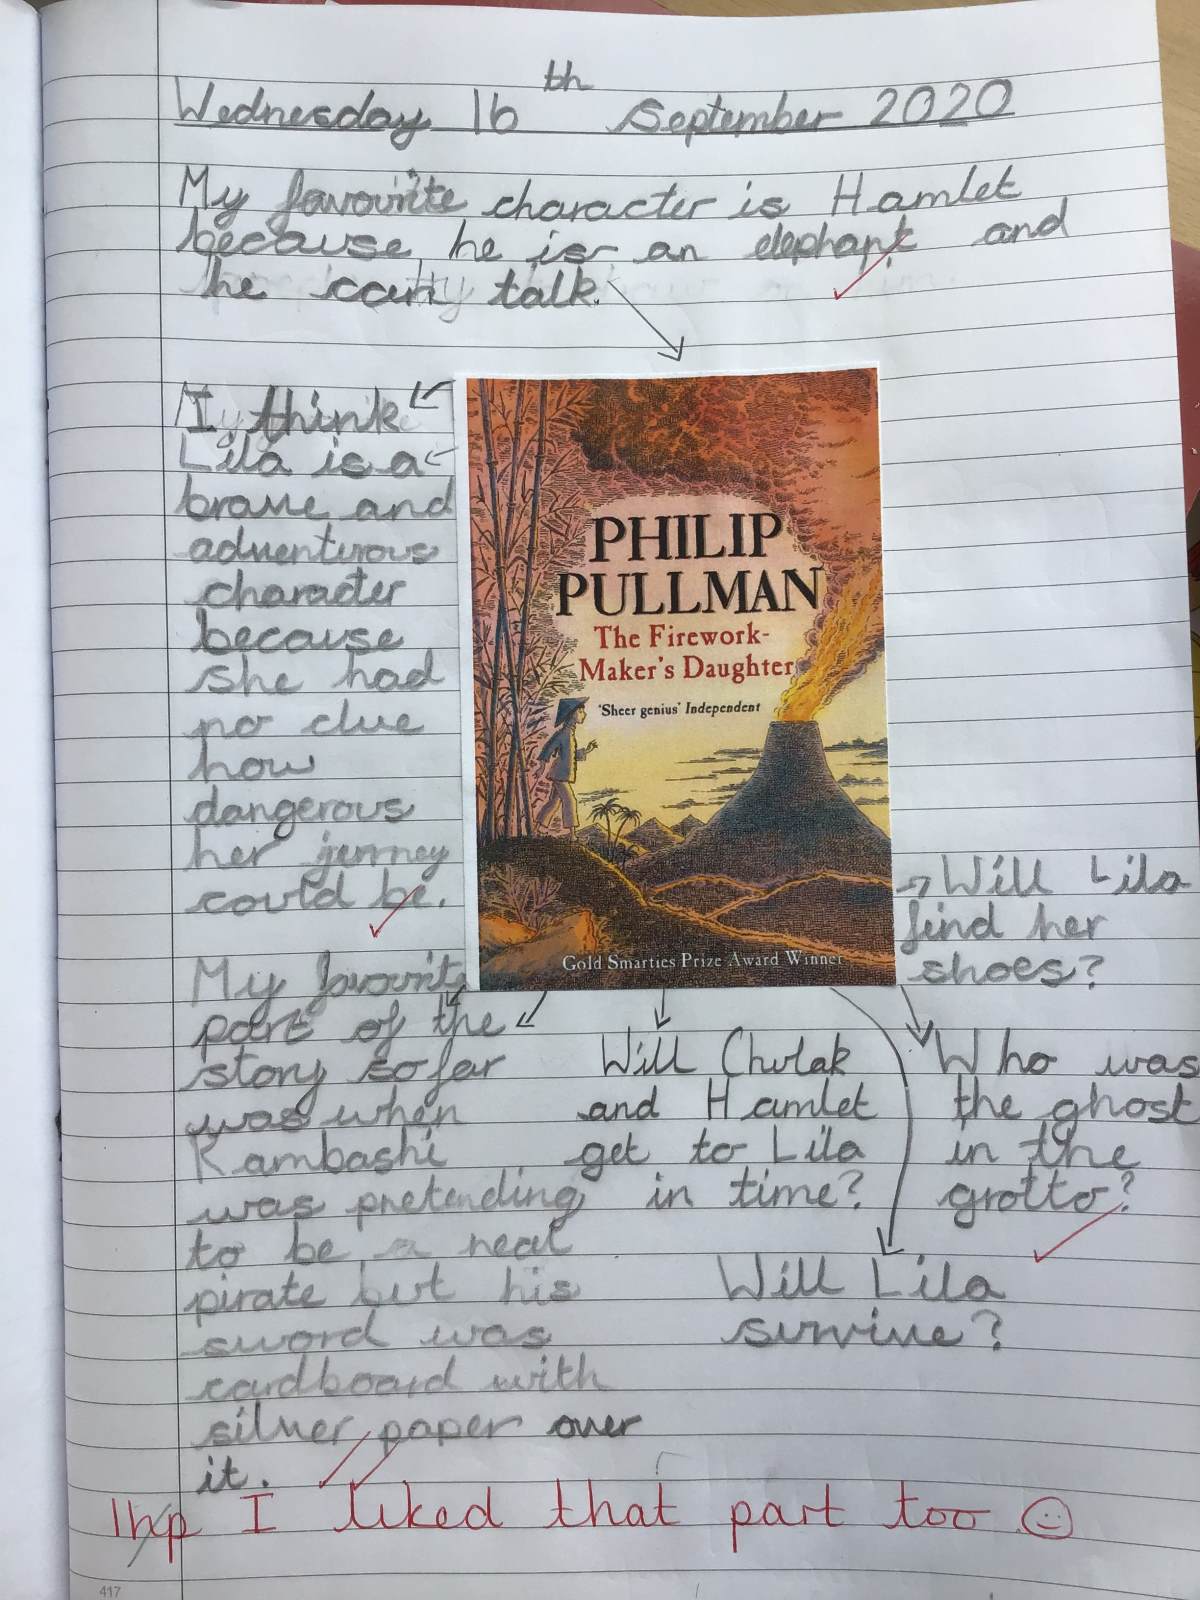 Wednesday 16th September 2020
My favourite character is Hamlet
because he is an elephant and
he can talk.
I think
Lila is a
brave and
adventurous
character
because
she had
no clue
how
dangerous
her jerney
could be.
My favourit
part of the
story so far
was when
Rambashi
was pretending
to be a real
pirate but his
sword was
cardboard with
silver paper over
it.
PHILIP
PULLMAN
The Firework-
Maker's Daughter
'Sheer genius' Independent
Gold Smarties Prize Award Winner
Will Chulak
and Hamlet
get to Lila
in time?
Will Lila
survive?
Will Lila
find her
shoes?
Who was
the ghost
in the
grotto?
1hp I liked that part too
417